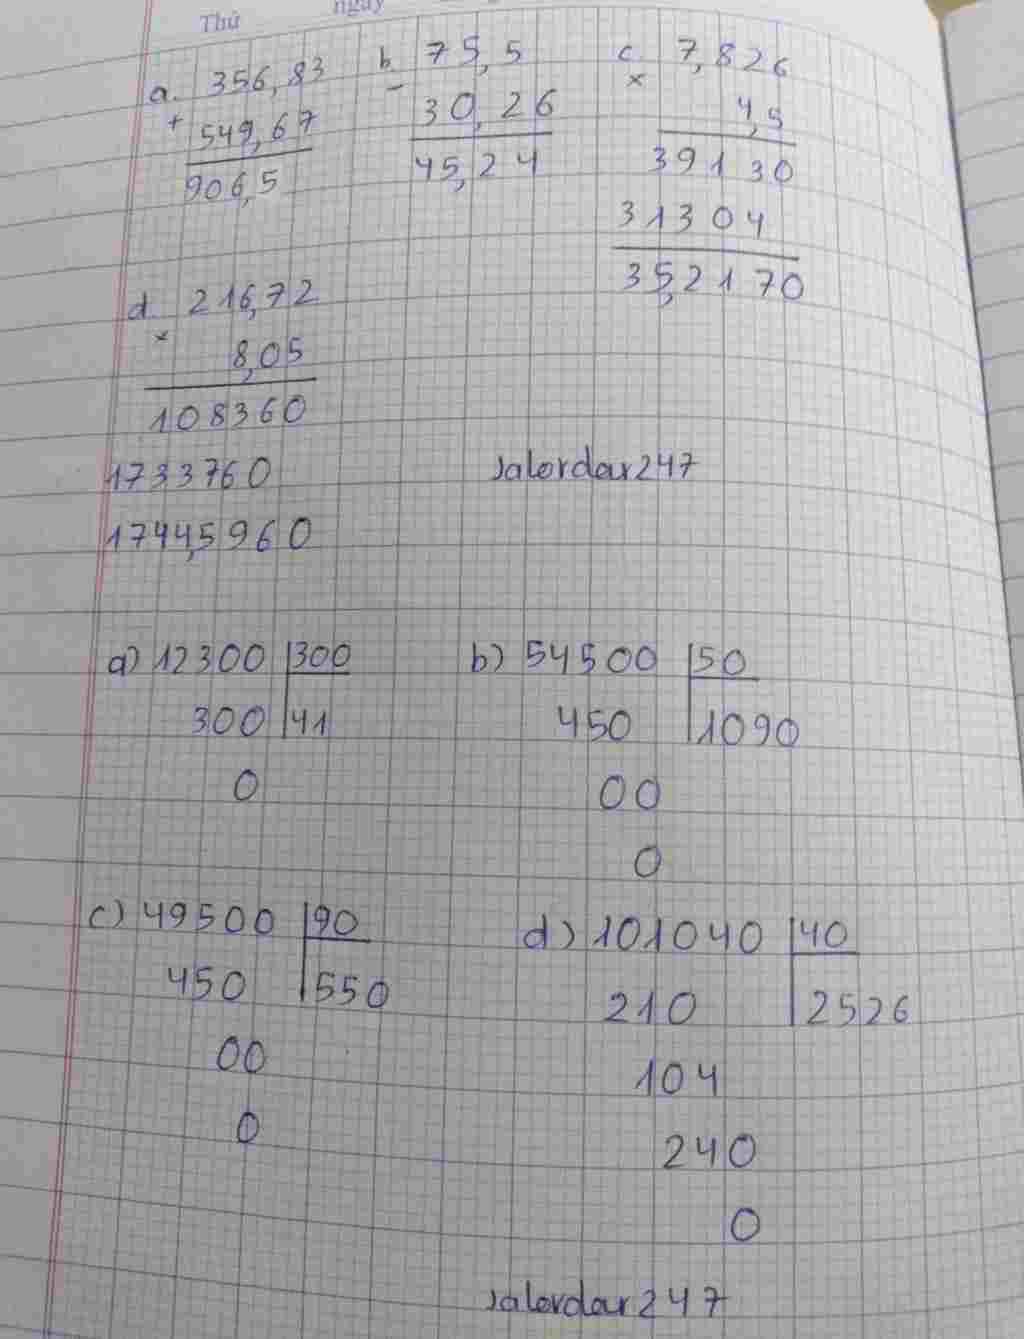 Thứ ngày
a. 356,83
+
549,67
906,5
b 75,5
-
30,26
45,24
c. 7,826
×
4,5
39130
31304
35,2170
d. 216,72
×
8,05
108360
1733760
1744,5960
Jalordar247
a) 12300 300
300 41
0
b) 54500 50
450 1090
00
0
c) 49500 90
450 550
00
0
d) 101040 40
210 2526
104
240
0
Jalordar247